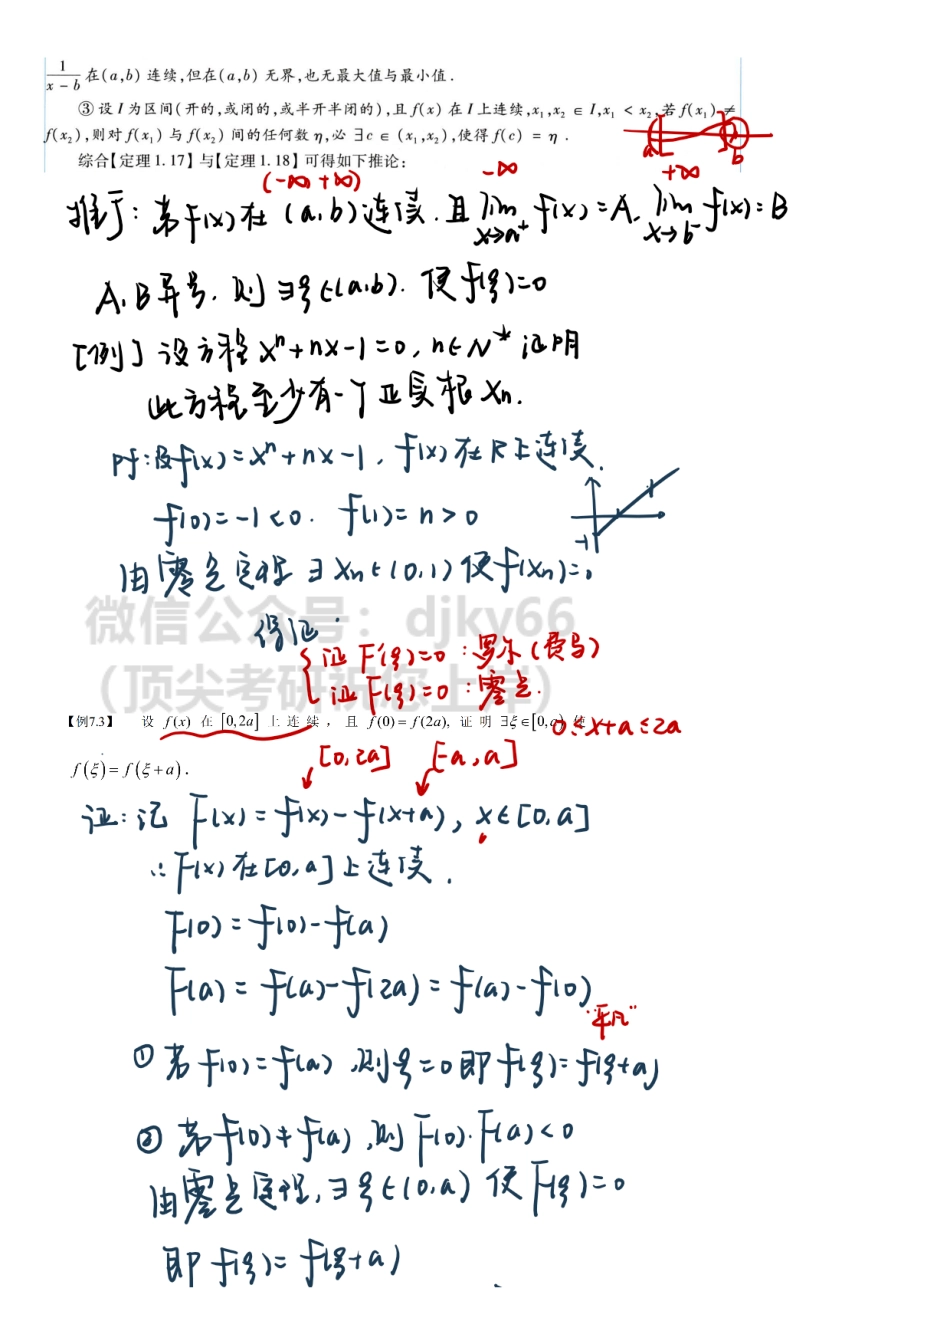 1/(x-b) 在(a,b)连续,但在(a,b)无界,也无最大值与最小值.
③设I为区间(开的,或闭的,或半开半闭的),且f(x)在I上连续,x₁,x₂∈I,x₁<x₂,若f(x₁)≠
f(x₂),则对f(x₁)与f(x₂)间的任何数η,必∃c∈(x₁,x₂),使得f(c)=η.
a b
综合【定理1.17】与【定理1.18】可得如下推论:
(-∞ +∞) -∞ +∞
推广: 若f(x)在(a,b)连续.且 lim x→a⁺ f(x)=A. lim x→b⁻ f(x)=B
A,B异号.则∃ξ∈(a,b).使f(ξ)=0
[例] 设方程 xⁿ+nx-1=0, n∈N* 证明
此方程至少有一个正实根 xₙ.
pf:设f(x)=xⁿ+nx-1,f(x)在R上连续.
f(0)=-1<0. f(1)=n>0
-1
由零点定理 ∃xₙ∈(0,1)使f(xₙ)=0
微信公众号:djky66
得证.
{证F'(ξ)=0:罗尔(费马)
证F(ξ)=0:零点.
(顶尖考研祝您上岸)
【例7.3】 设 f(x) 在 [0,2a] 上连续,且 f(0)=f(2a), 证明 ∃ξ∈[0,a) 使
0≤x+a≤2a
f(ξ)=f(ξ+a).
[0,2a] [-a,a]
证:记 F(x)=f(x)-f(x+a), x∈[0,a]
∴F(x)在[0,a]上连续.
F(0)=f(0)-f(a)
F(a)=f(a)-f(2a)=f(a)-f(0)
"平凡"
①若f(0)=f(a),则ξ=0即f(ξ)=f(ξ+a)
②若f(0)≠f(a),则F(0)·F(a)<0
由零点定理,∃ξ∈(0,a)使F(ξ)=0
即f(ξ)=f(ξ+a)